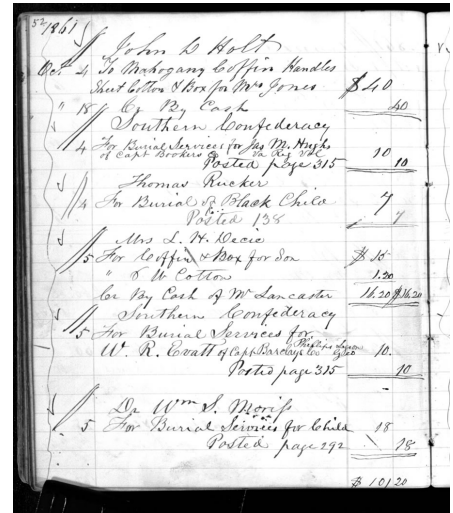 52
1861
John L Holt
Oct. 4 To Mahogany Coffin Handles
Sheet Cotton & Box for Mrs Jones $40
" 18 Cr By Cash 40
Southern Confederacy
4 For Burial Services for Jas M. Hughs
of Capt Bookers Co Va Reg Vol 10
Posted page 315 10
Thomas Rucker
4 For Burial of Black Child 7
Posted 138 7
Mrs L. H. Decie
5 For Coffin & Box for Son $15
" 8 W Cotton 1.20
Cr By Cash of Mr Lancaster 16.20 $16.20
Southern Confederacy
5 For Burial Services for
W. R. Evatt of Capt Barclays Co Phillips Legion 10.
Posted page 315 10
Dr Wm S. Moriss
5 For Burial Services for Child 18
Posted page 292 18
$ 101 20